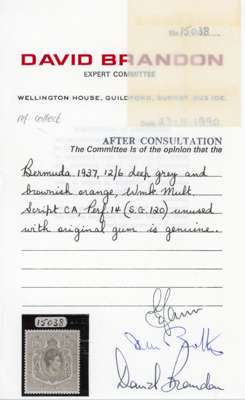 No. 15038
DAVID BRANDON
EXPERT COMMITTEE
WELLINGTON HOUSE, GUILDFORD, SURREY
Date 1990
AFTER CONSULTATION
The Committee is of the opinion that the
Bermuda 1937, 12/6 deep grey and
brownish orange, Wmk Mult.
Script CA, Perf 14 (S.G. 120) unused
with original gum is genuine.
15038
David Brandon